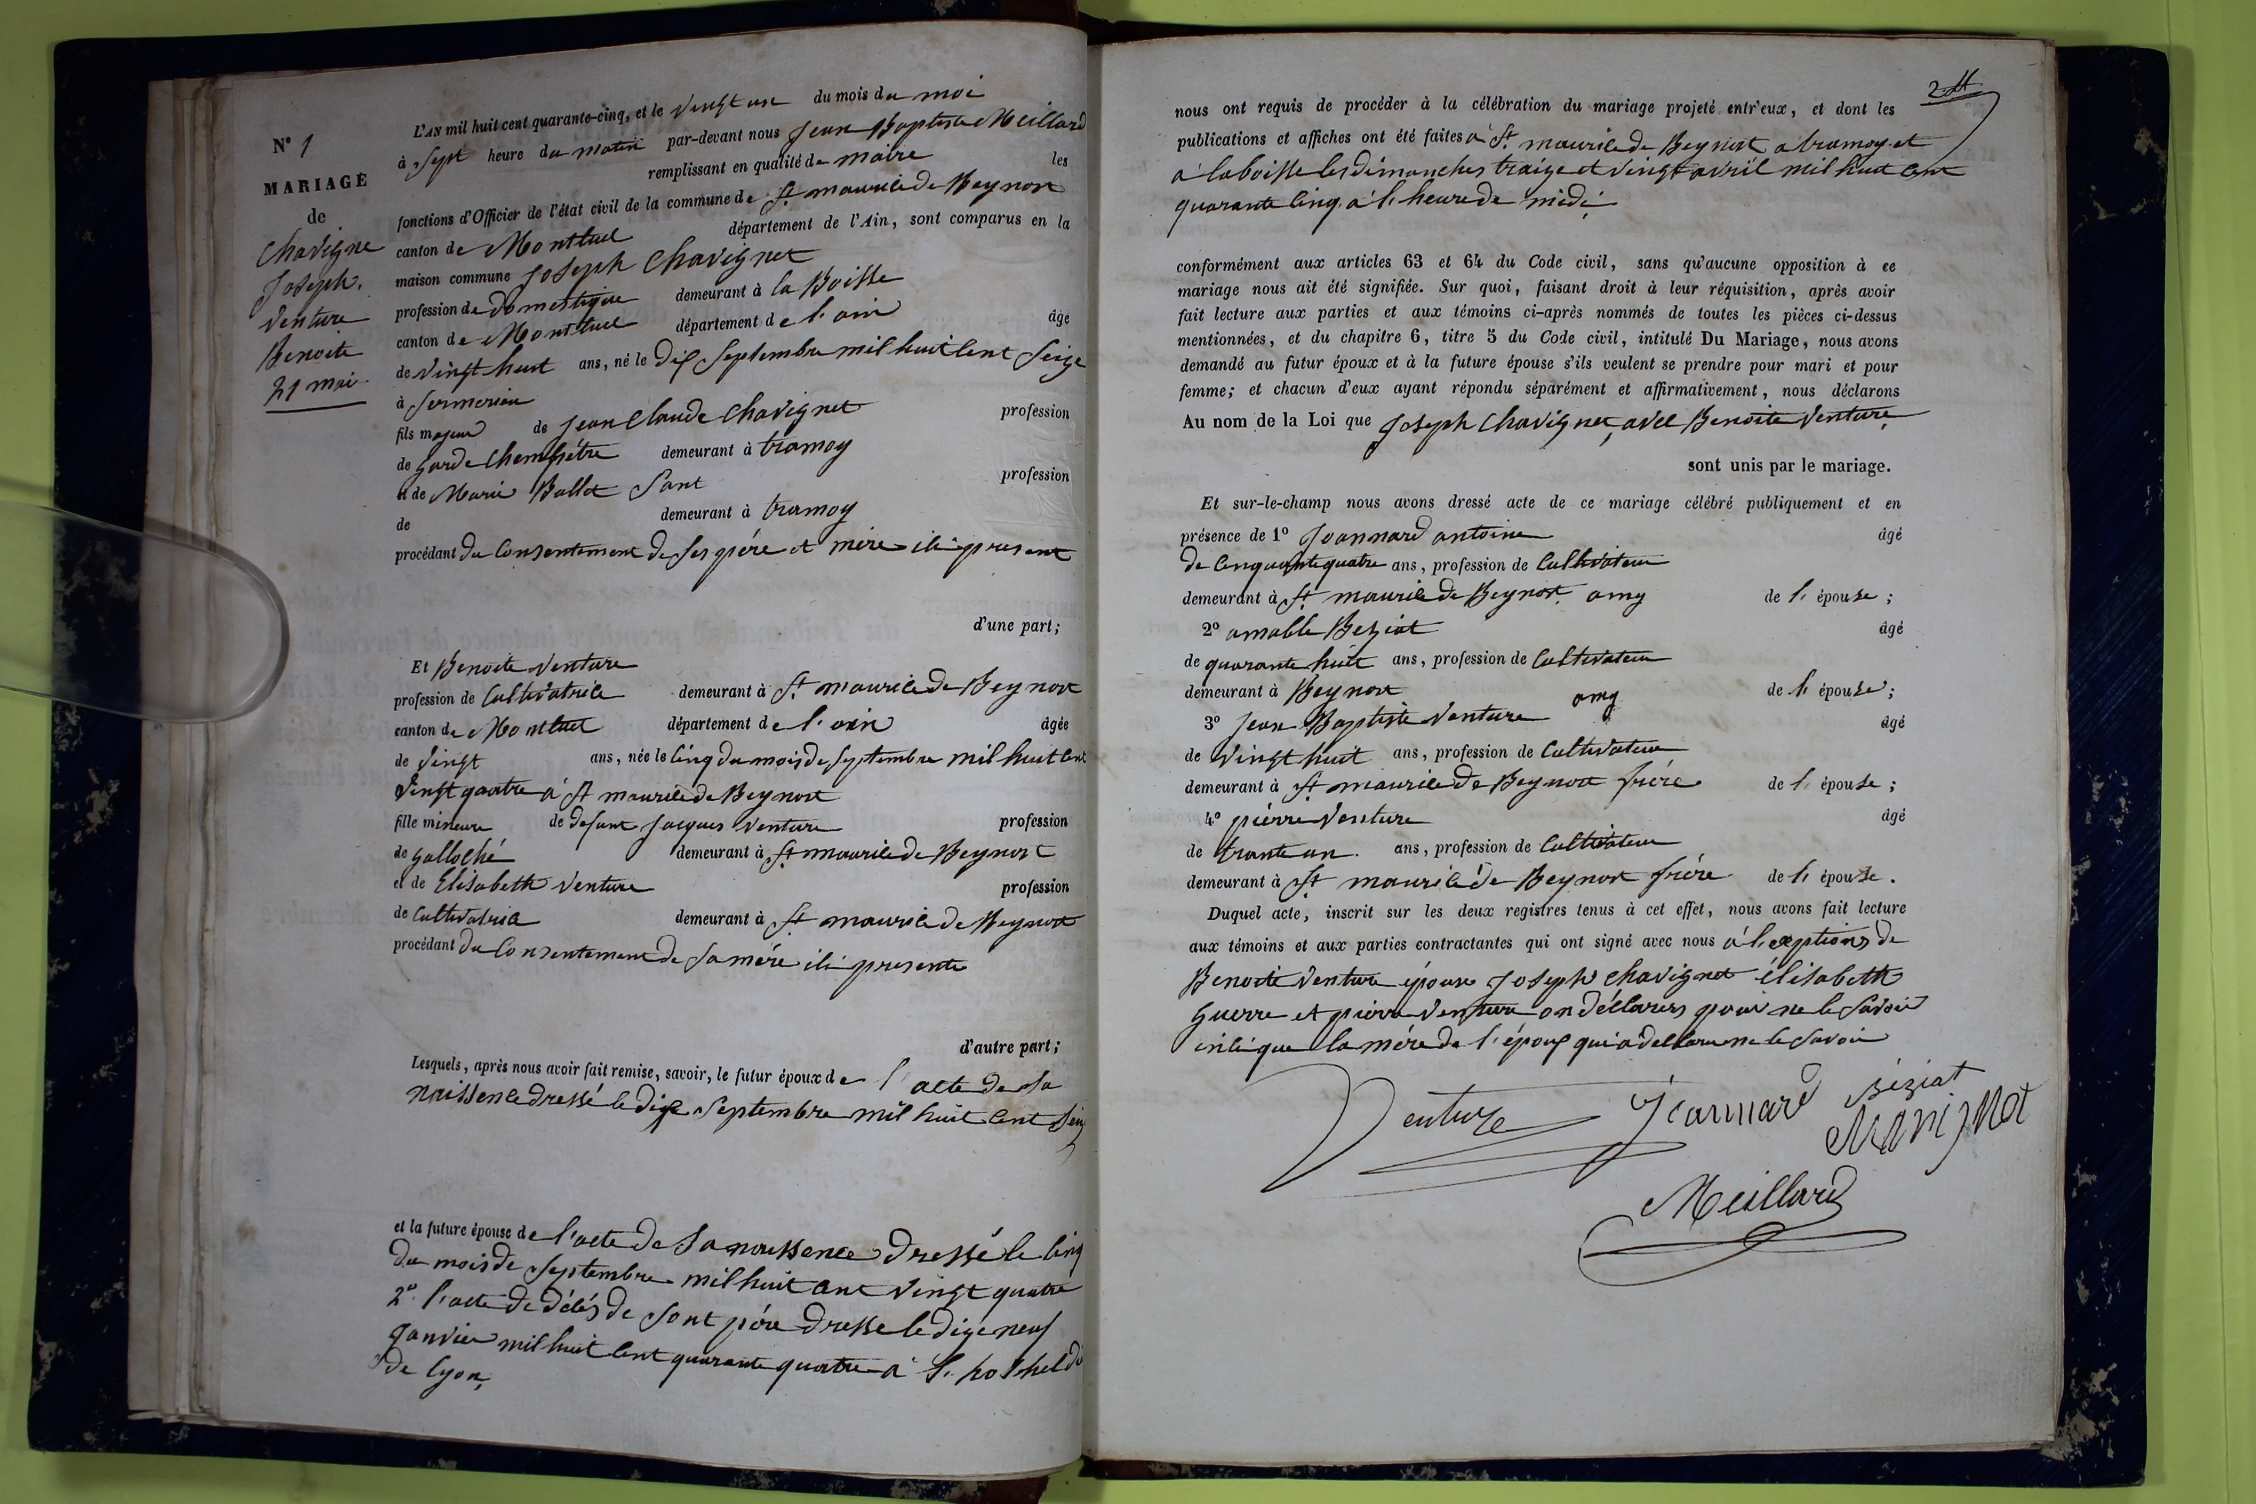 N° 1
MARIAGE
de
Chavigne
Joseph.
Venture
Benoite
21 mai
L'AN mil huit cent quarante-cinq, et le vingt un du mois du mai
à sept heure du matin par-devant nous Jean Baptiste Meillard
remplissant en qualité de maire les
fonctions d'Officier de l'état civil de la commune de St maurice de Beynost
canton de Montluel département de l'Ain, sont comparus en la
maison commune Joseph Chavignet
profession de domestique demeurant à la Boisse
canton de Montluel département de l'ain âgé
de vingt huit ans, né le dix septembre mil huit cent seize
à sermerieu
fils majeur de Jean Claude Chavignet profession
de garde Champêtre demeurant à tramoy
et de Marie Ballet sant profession
de demeurant à tramoy
procédant du Consentement de ses père et mère ici present
d'une part;
Et Benoite Venture
profession de Cultivatrice demeurant à St maurice de Beynost
canton de Montluel département de l'ain âgée
de vingt ans, née le cinq du mois de septembre mil huit cent
vingt quatre à St maurice de Beynost
fille mineure de defunt Jacques Venture profession
de galloché demeurant à St maurice de Beynost
et de Elisabeth Venture profession
de Cultivatrice demeurant à St maurice de Beynost
procédant du Consentement de sa mére ici presente
d'autre part;
Lesquels, après nous avoir fait remise, savoir, le futur époux de l'acte de sa
naissence dressé le dix septembre mil huit cent seiz
et la future épouse de l'acte de sa naissence dressé le cinq
du mois de septembre mil huit cent vingt quatre
2° l'acte de décés de sont pére dresse le dixe neuf
Janvier mil huit cent quarante quatre à l'
de Lyon,
2
nous ont requis de procéder à la célébration du mariage projeté entr'eux, et dont les
publications et affiches ont été faites à St maurice de Beynost a tramoy et
à laboisse les dimanches traize et vingt avril mil huit cent
quarante cinq à l'heure de midi
conformément aux articles 63 et 64 du Code civil, sans qu'aucune opposition à ce
mariage nous ait été signifiée. Sur quoi, faisant droit à leur réquisition, après avoir
fait lecture aux parties et aux témoins ci-après nommés de toutes les pièces ci-dessus
mentionnées, et du chapitre 6, titre 5 du Code civil, intitulé Du Mariage, nous avons
demandé au futur époux et à la future épouse s'ils veulent se prendre pour mari et pour
femme; et chacun d'eux ayant répondu séparément et affirmativement, nous déclarons
Au nom de la Loi que Joseph Chavignet, avec Benoite Venture,
sont unis par le mariage.
Et sur-le-champ nous avons dressé acte de ce mariage célébré publiquement et en
présence de 1° Joannard antoine âgé
de cinquante quatre ans, profession de Cultivateur
demeurant à St maurice de Beynost. amy de l' épouse;
2° amable Beziat âgé
de quarante huit ans, profession de Cultivateur
demeurant à Beynost amy de l' épouse;
3° Jean Baptiste Venture âgé
de vingt huit ans, profession de Cultivateur
demeurant à St maurice de Beynost frére de l' épouse;
4° pierre Venture âgé
de trante un ans, profession de Cultivateur
demeurant à St maurice de Beynost frére de l' épouse.
Duquel acte, inscrit sur les deux registres tenus à cet effet, nous avons fait lecture
aux témoins et aux parties contractantes qui ont signé avec nous à l'exptions de
Benoite Venture épouse Joseph Chavignet élisabeth
Guerre et pierre Venture on déclarers pour ne le savoir
que la mére de l'époux qui a declare ne le savoir
Venture Joannard béziat
Chavignet
Meillard